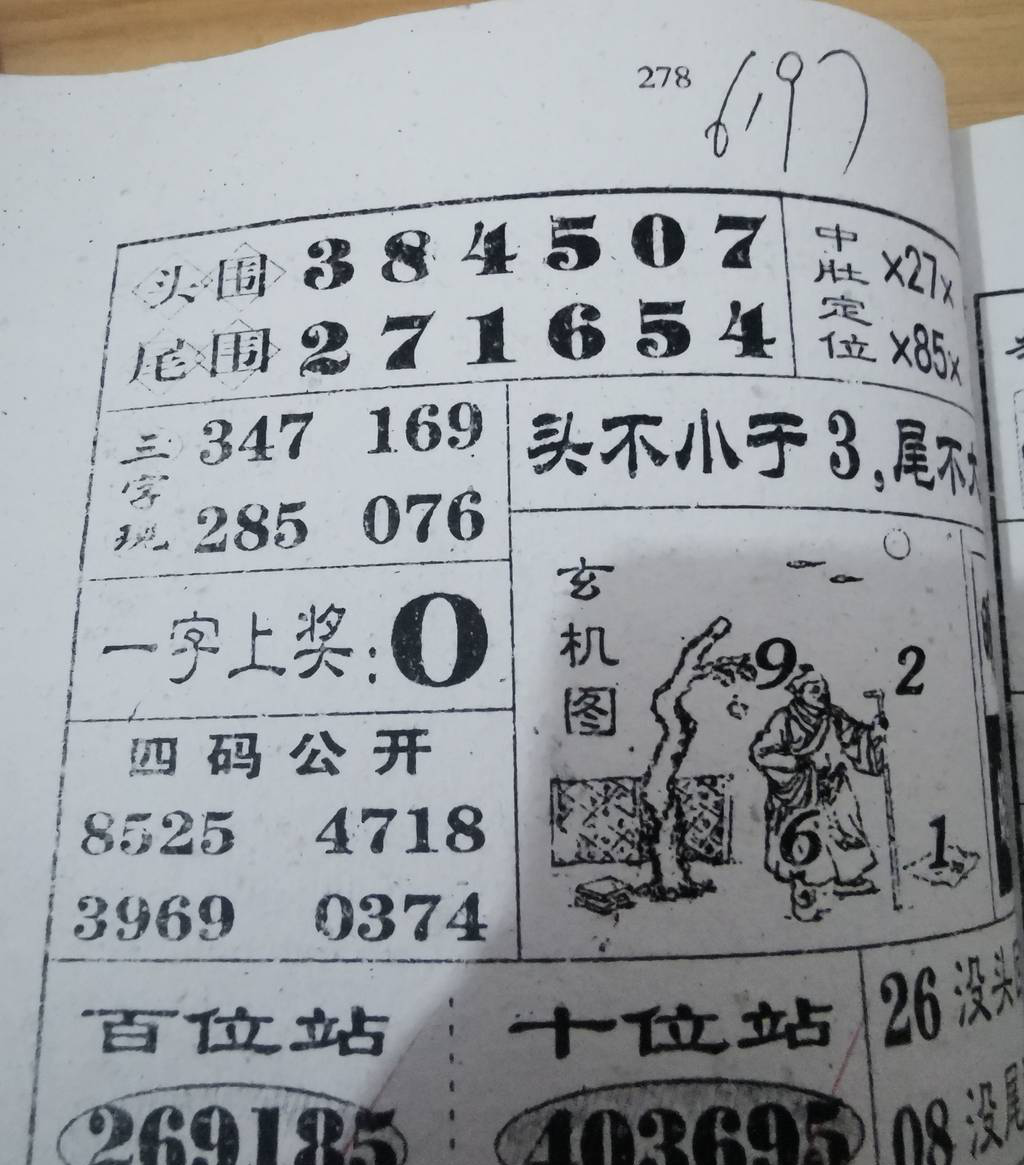 278 697
头围 3 8 4 5 0 7
尾围 2 7 1 6 5 4
中肚定位
x27x
x85x
三字现
347 169
285 076
头不小于3,尾不大
一字上奖:0
玄机图
9
2
6
1
四码公开
8525 4718
3969 0374
百位站 十位站
269185 403695
26 没头
08 没尾